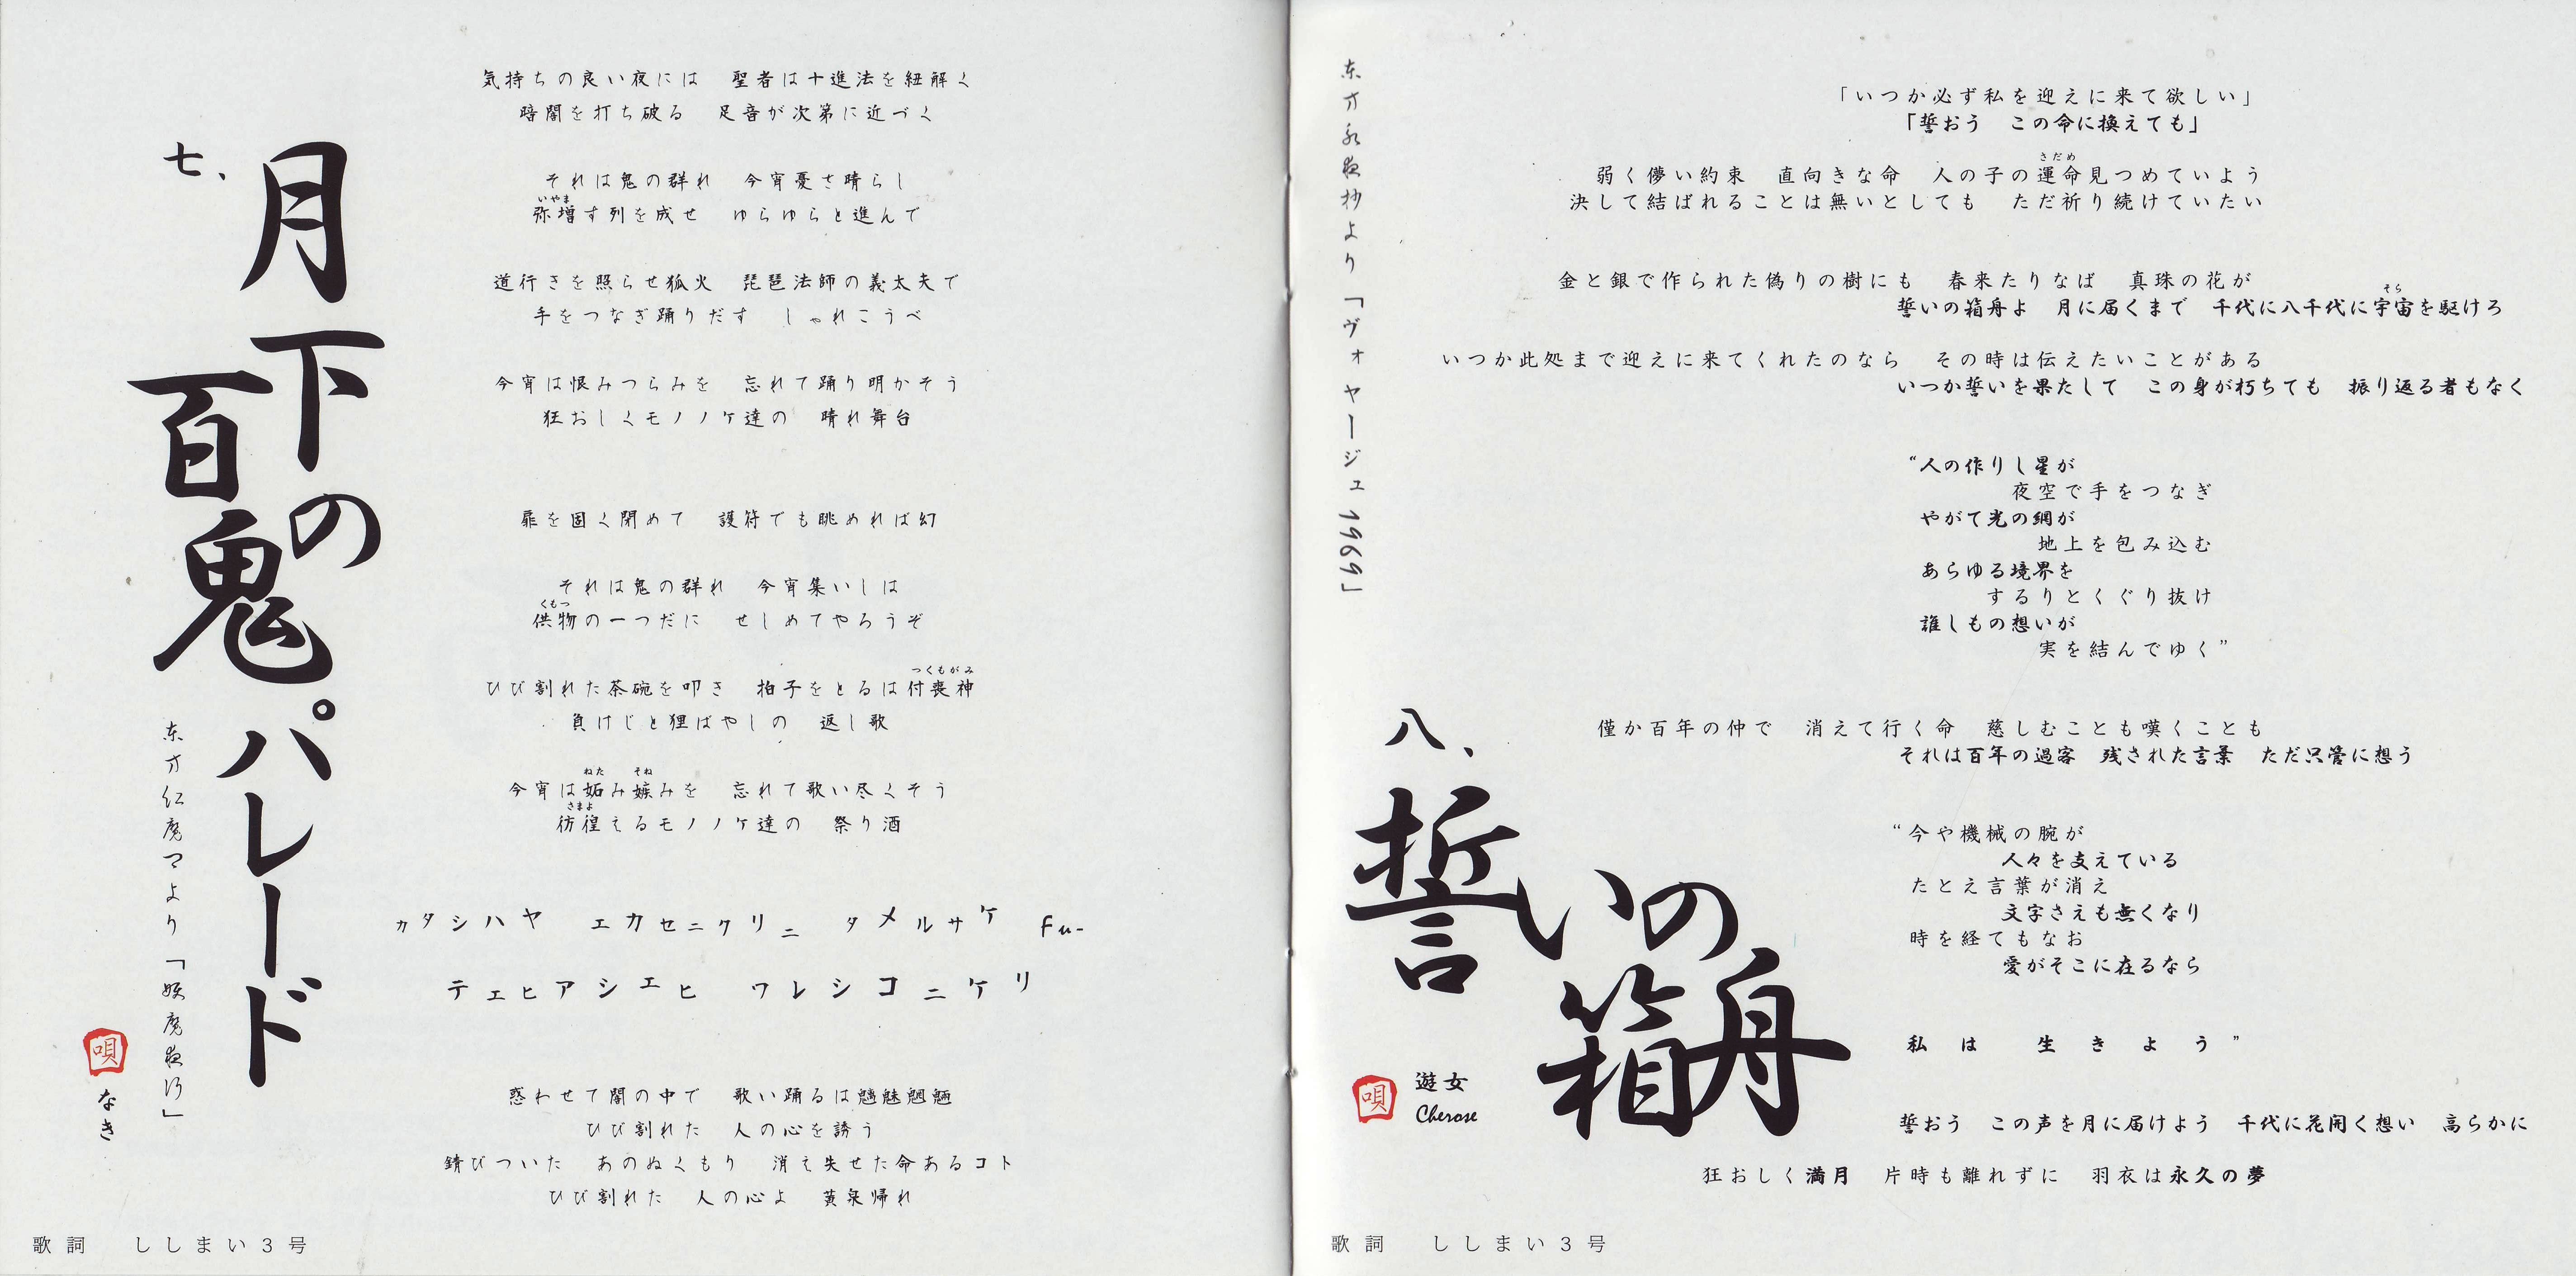 七、
月下の
百鬼パレード
東方紅魔郷より「妖魔夜行」
唄
なき
気持ちの良い夜には　聖者は十進法を紐解く
暗闇を打ち破る　足音が次第に近づく
それは鬼の群れ　今宵憂さ晴らし
いやま
弥増す列を成せ　ゆらゆらと進んで
道行きを照らせ狐火　琵琶法師の義太夫で
手をつなぎ踊りだす　しゃれこうべ
今宵は恨みつらみを　忘れて踊り明かそう
狂おしくモノノケ達の　晴れ舞台
扉を固く閉めて　護符でも眺めれば幻
それは鬼の群れ　今宵集いしは
くもつ
供物の一つだに　せしめてやろうぞ
つくもがみ
ひび割れた茶碗を叩き　拍子をとるは付喪神
負けじと狸ばやしの　返し歌
ねた　そね
今宵は妬み嫉みを　忘れて歌い尽くそう
さまよ
彷徨えるモノノケ達の　祭り酒
カタシハヤ　エカセニクリニ　タメルサケ　fu-
テエヒアシエヒ　ワレシコニケリ
惑わせて闇の中で　歌い踊るは魑魅魍魎
ひび割れた　人の心を誘う
錆びついた　あのぬくもり　消え失せた命あるコト
ひび割れた　人の心よ　黄泉帰れ
歌詞　ししまい３号
东方永夜抄より「ヴォヤージュ1969」
八、
誓いの
箱舟
唄
遊女
Cherose
「いつか必ず私を迎えに来て欲しい」
「誓おう　この命に換えても」
さだめ
弱く儚い約束　直向きな命　人の子の運命見つめていよう
決して結ばれることは無いとしても　ただ祈り続けていたい
金と銀で作られた偽りの樹にも　春来たりなば　真珠の花が
そら
誓いの箱舟よ　月に届くまで　千代に八千代に宇宙を駆けろ
いつか此処まで迎えに来てくれたのなら　その時は伝えたいことがある
いつか誓いを果たして　この身が朽ちても　振り返る者もなく
“人の作りし星が
夜空で手をつなぎ
やがて光の網が
地上を包み込む
あらゆる境界を
するりとくぐり抜け
誰しもの想いが
実を結んでゆく”
僅か百年の仲で　消えて行く命　慈しむことも嘆くことも
それは百年の過客　残された言葉　ただ只管に想う
“今や機械の腕が
人々を支えている
たとえ言葉が消え
文字さえも無くなり
時を経てもなお
愛がそこに在るなら
私は　生きよう”
誓おう　この声を月に届けよう　千代に花開く想い　高らかに
狂おしく満月　片時も離れずに　羽衣は永久の夢
歌詞　ししまい３号